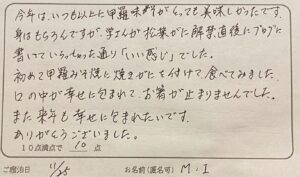 今年は、いつも以上に甲羅味噌がとっても美味しかったです。
身はもちろんですが、学さんが松葉がに解禁直後にブログに
書いていらっしゃった通り「いい感じ」でした。
初めて甲羅みそ焼に焼きがにを付けて食べてみました。
口の中が幸せに包まれて、お箸が止まりませんでした。
また来年も幸せに包まれたいです。
ありがとうございました。
10点満点で 10 点
ご宿泊日 11/25 お名前(匿名可) M.I